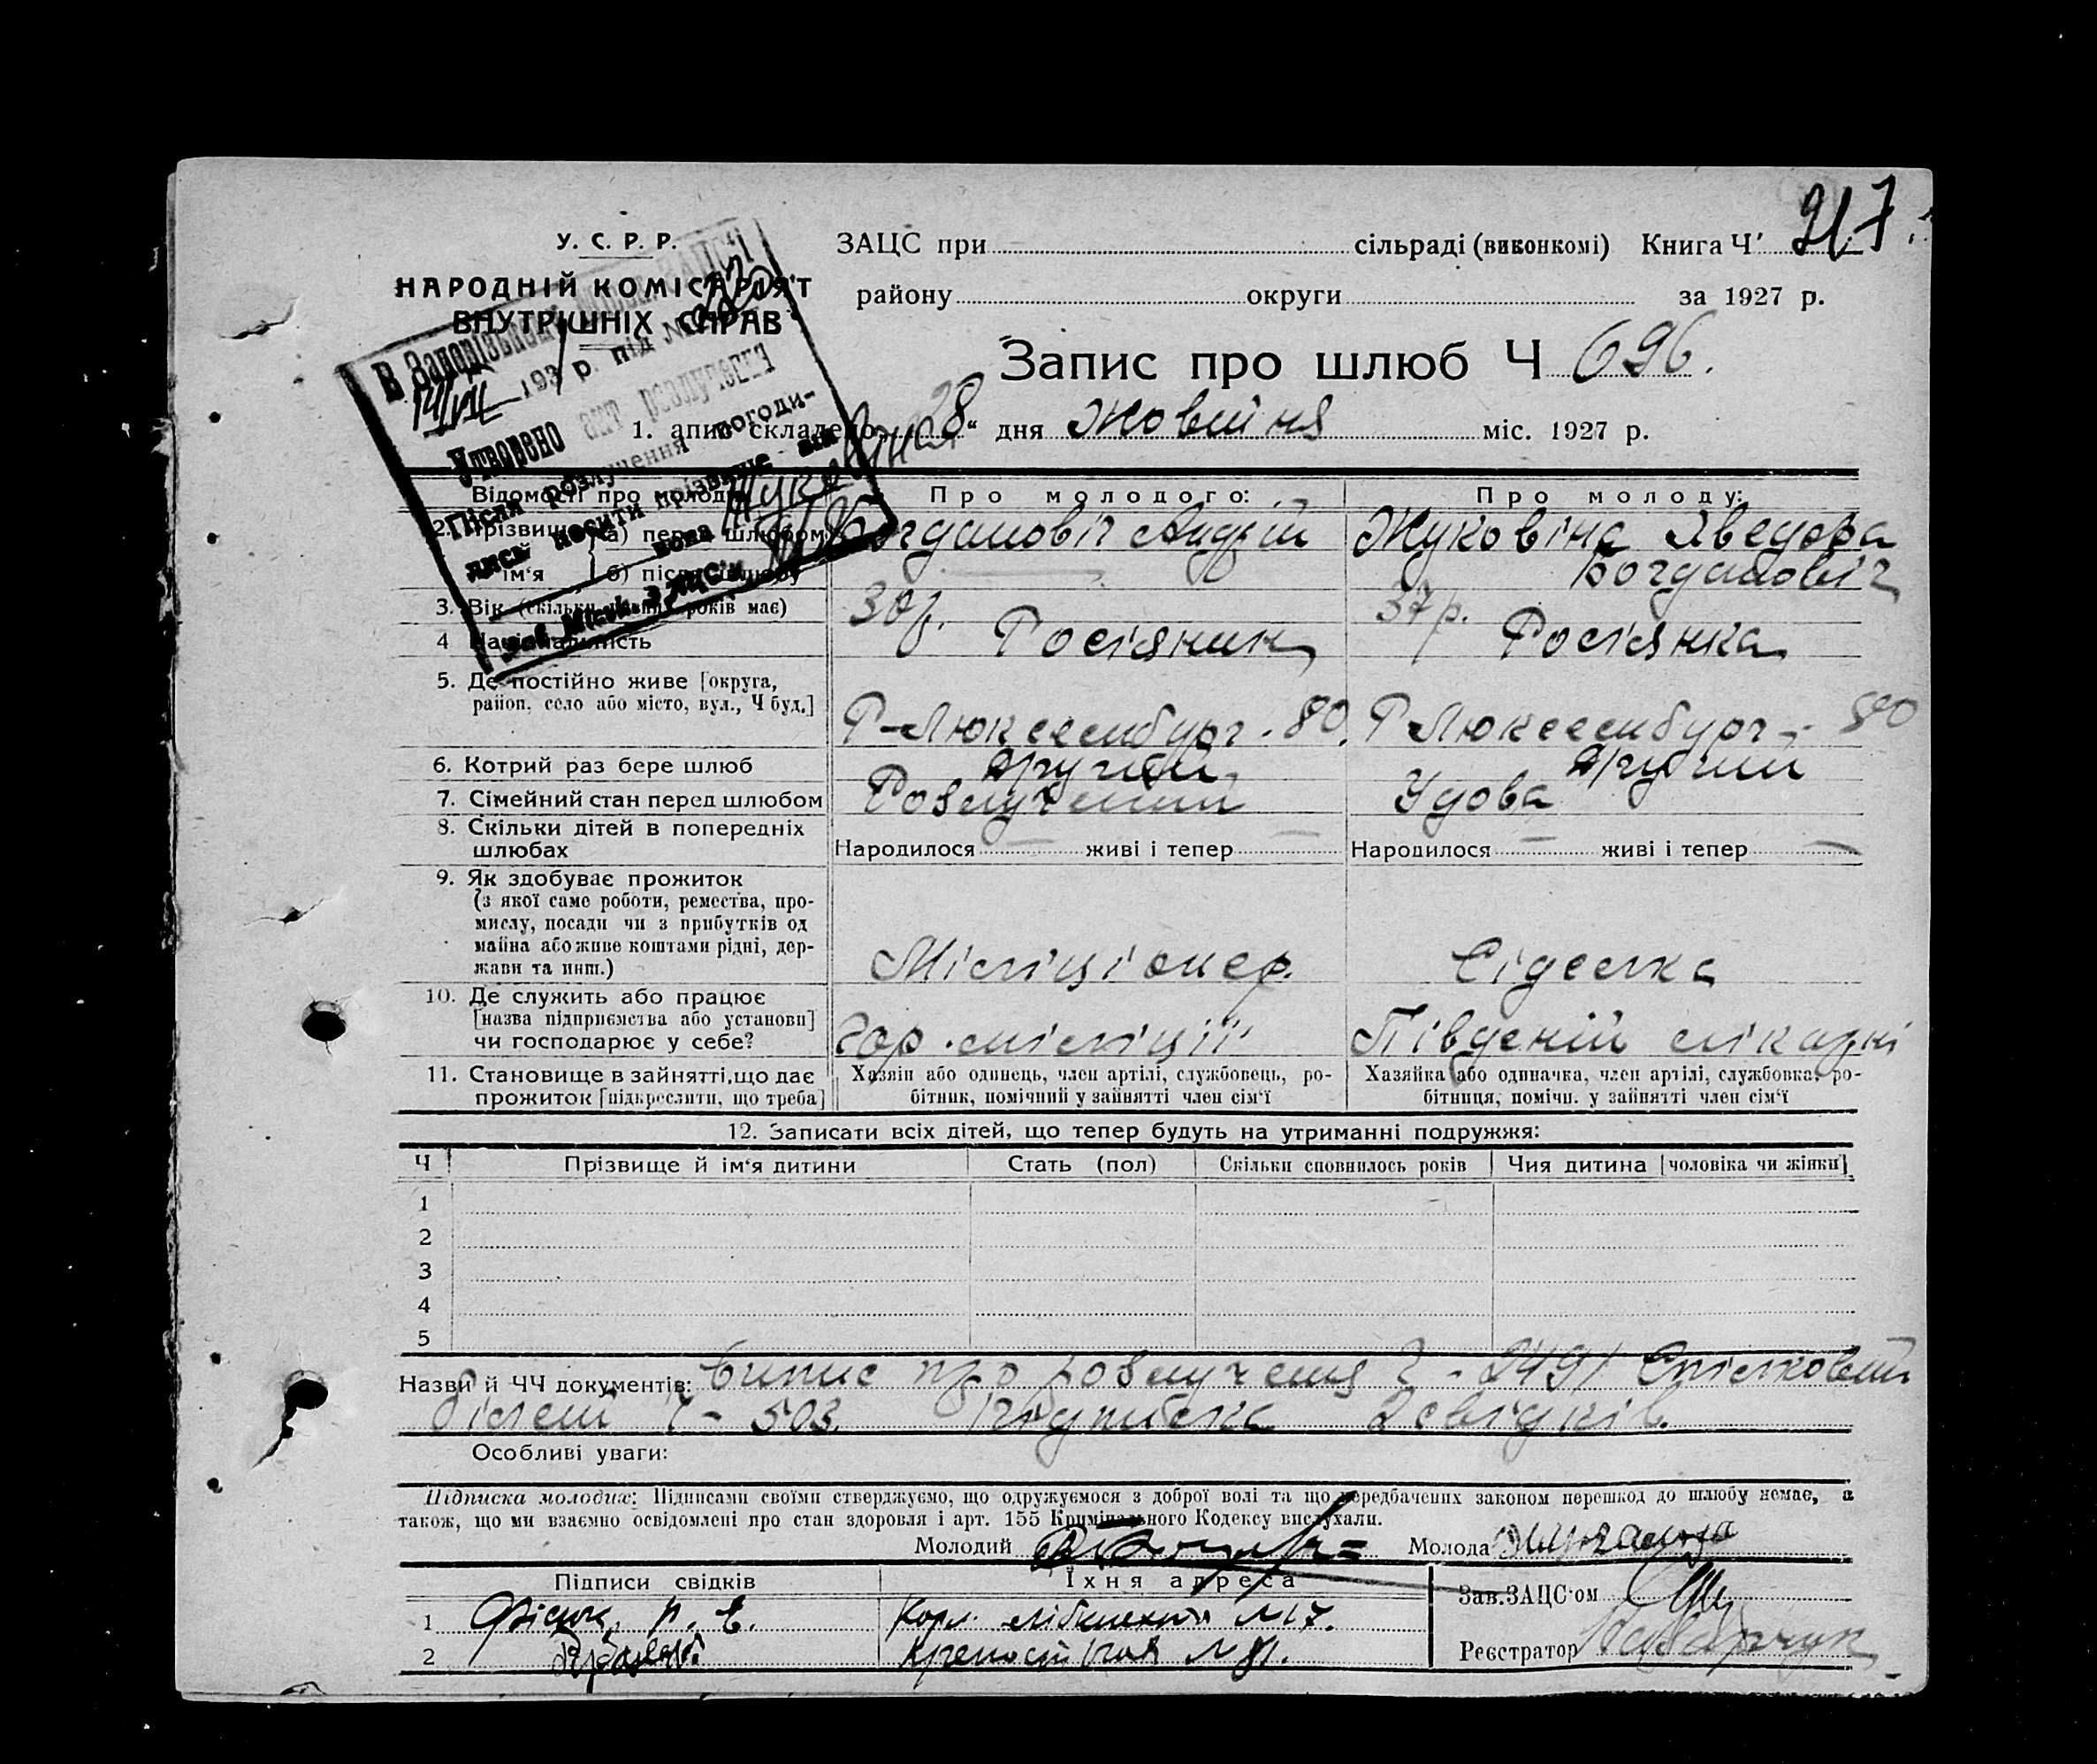 917
У. С. Р. Р.
НАРОДНІЙ КОМІСАРІЯТ
ВНУТРІШНІХ СПРАВ
ЗАЦС при сільраді (виконкомі) Книга Ч
району округи за 1927 р.
Запис про шлюб Ч 696.
В Запорізькому
193 р. під №
Утворено акт розлучення
Після розлучення погоди-
лись носити прізвище він
вона
1. апис складено 28 “ дня Жовтня міс. 1927 р.
Відомості про молодих Про молодого: Про молоду:
2. Прізвище а) перед шлюбом Богдановіч Андрій Жуковіна Явдора
ім'я б) після шлюбу Богдановіч
3. Вік (скільки років має) 30 р. 37 р.
4 Національність Росіянин Росіянка
5. Де постійно живе [округа,
район, село або місто, вул., Ч буд.] Р-Люксембург - 80. Р Люксембург - 80
6. Котрий раз бере шлюб другий другий
7. Сімейний стан перед шлюбом Розлучений Удова
8. Скільки дітей в попередніх
шлюбах Народилося — живі і тепер — Народилося — живі і тепер —
9. Як здобуває прожиток
(з якої саме роботи, ремества, про-
мислу, посади чи з прибутків од
майна або живе коштами рідні, дер-
жави та инш.) Міліціонер. Сіделка
10. Де служить або працює
[назва підприємства або установи]
чи господарює у себе? Гор. міліції Південій лікарні
11. Становище в зайнятті, що дає
прожиток [підкреслити, що треба]
Хазяїн або одинець, член артілі, службовець, ро-
бітник, помічний у зайнятті член сім'ї
Хазяйка або одиначка, член артілі, службовка, ро-
бітниця, помічн. у зайнятті член сім'ї
12. Записати всіх дітей, що тепер будуть на утриманні подружжя:
Ч Прізвище й ім'я дитини Стать (пол) Скільки сповнилось років Чия дитина [чоловіка чи жінки]
1
2
3
4
5
Назви й ЧЧ документів: Випис про розлучення Ч - 2491 Спілковий
білет Ч - 503. Підписка 2 свідків.
Особливі уваги:
Підписка молодих: Підписами своїми стверджуємо, що одружуємося з доброї волі та що передбачених законом перешкод до шлюбу немає, а
також, що ми взаємно освідомлені про стан здоровля і арт. 155 Кримінального Кодексу вислухали.
Молодий Молода
Підписи свідків Їхня адреса Зав. ЗАЦС'ом
1 Карл Лібкнехта №17.
2 Крепостная №81.
Реєстратор